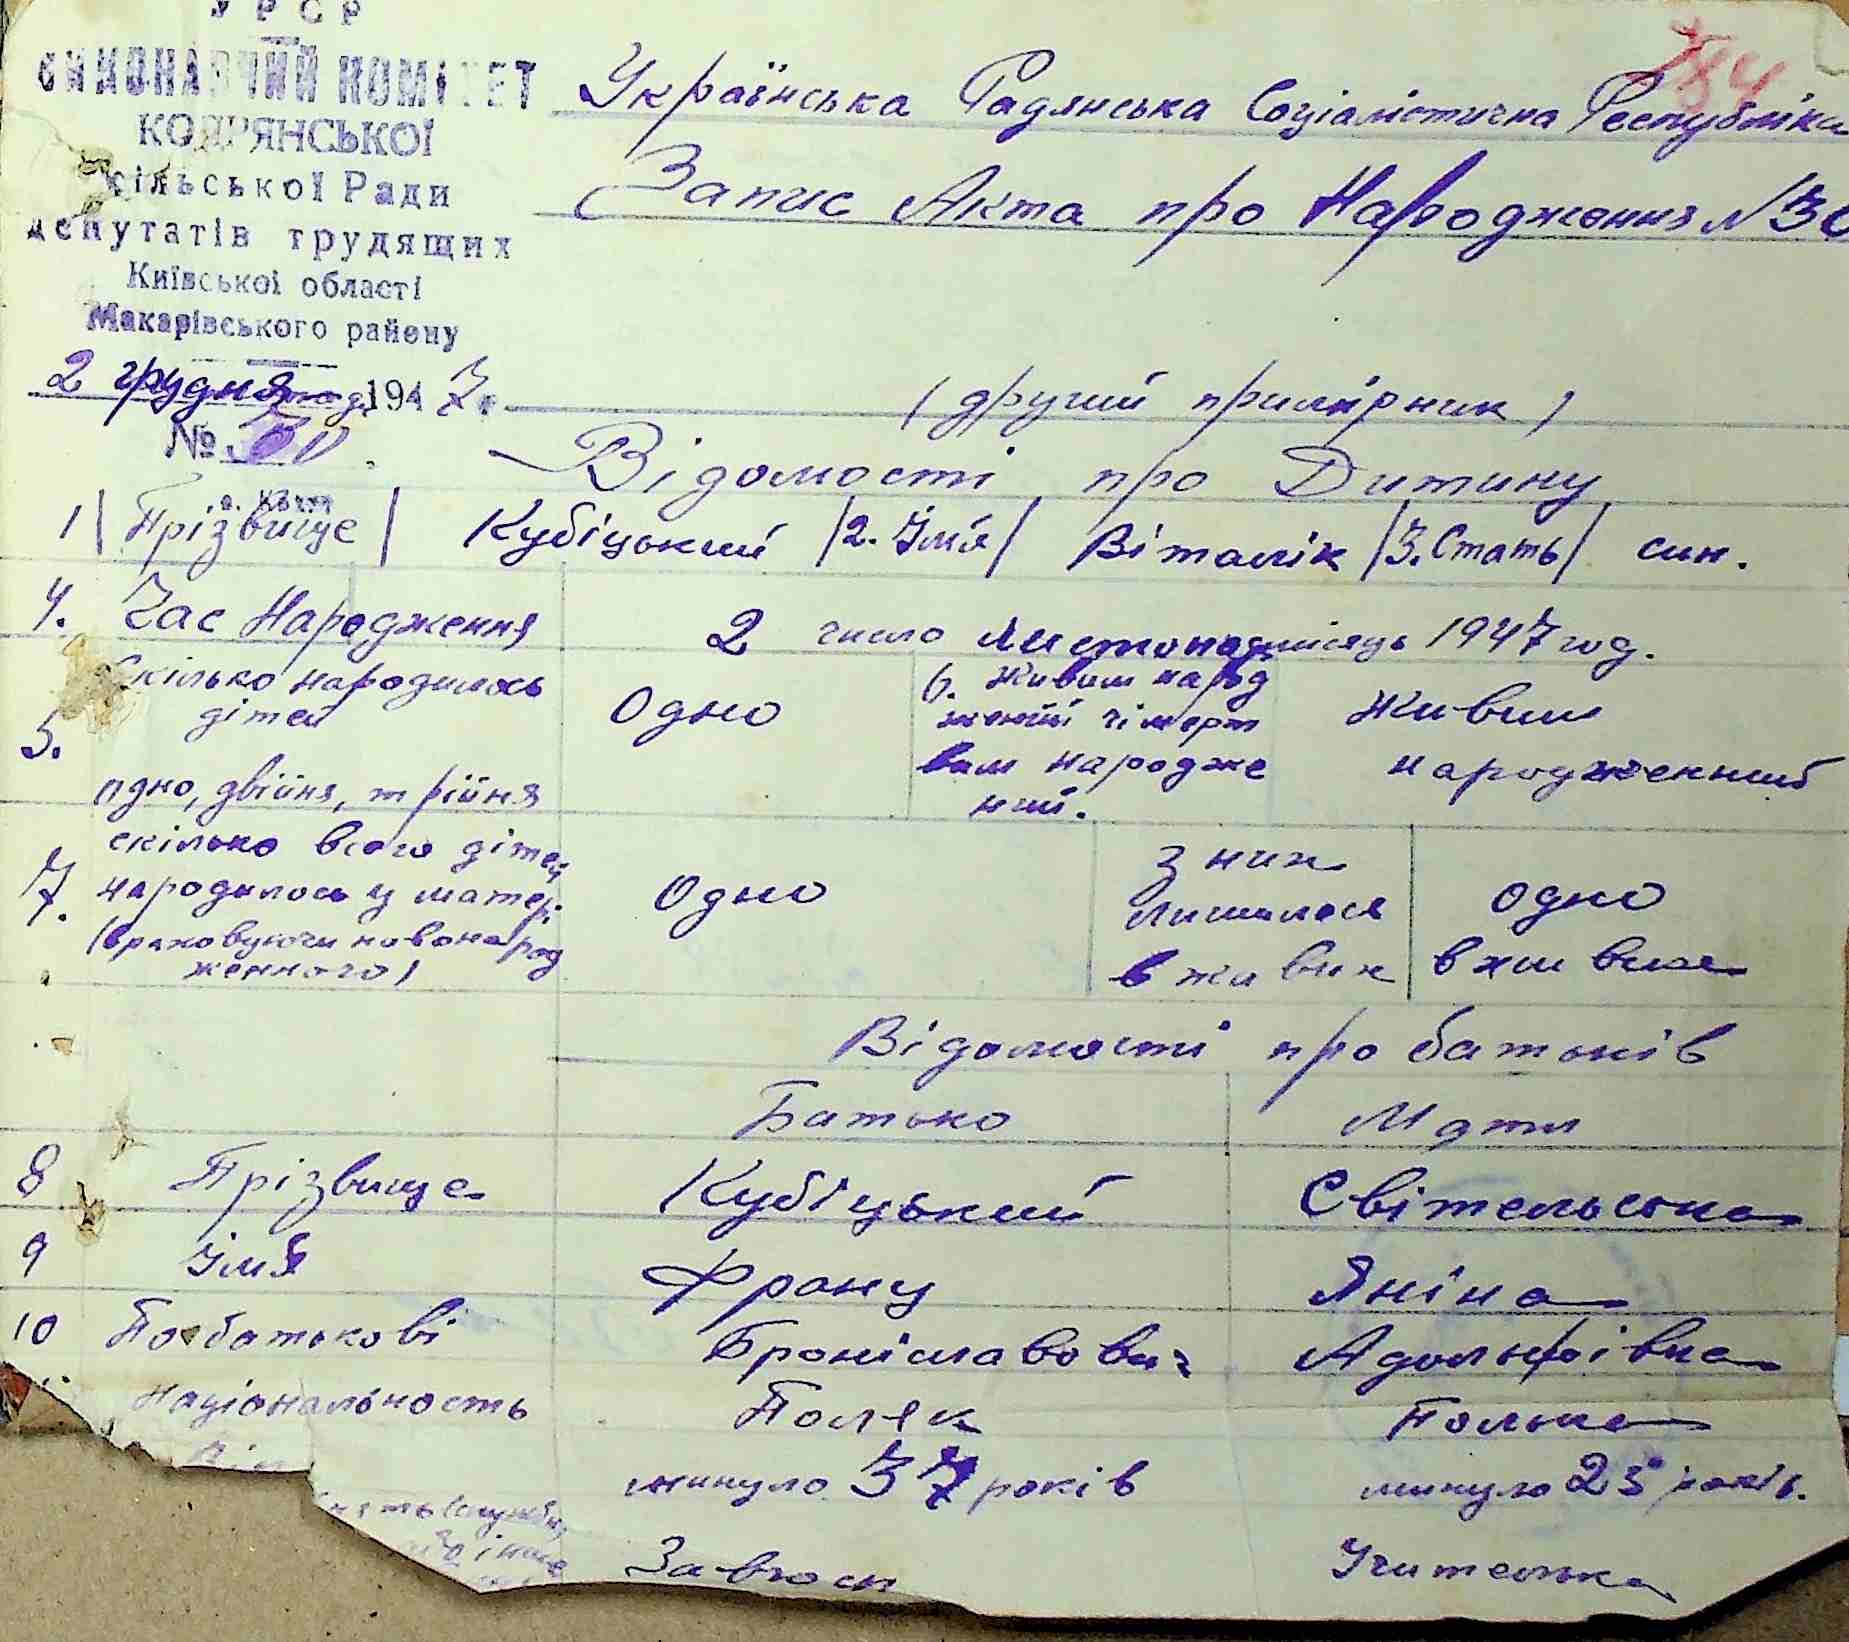 УРСР
ВИКОНАВЧИЙ КОМІТЕТ
КОДРЯНСЬКОЇ
сільської Ради
депутатів трудящих
Київської області
Макарівського району
2 грудня 1947 р.
№ 30
784
Українська Радянська Соціалістична Республіка
Запис Акта про Народження №30
(другий примірник)
Відомості про Дитину
1 | Прізвище | Кубіцький | 2. Імя | Віталік | 3. Стать | син.
4. Час Народження 2 число листопад місяць 1947 год.
5. Скілько народилось дітей
одно, двійня, трійня
Одно
6. Живим народ
жений чі мерт
вим народже
ний.
Живим
народженний
7. скілько всего дітей
народилось у матер.
(враховуючи новонарод
женного)
Одно
з них
лишилося
в живих
одно
в живих
Відомості про батьків
Батько Мати
8 Прізвище Кубіцький Світельська
9 Імя Франц Яніна
10 По батькові Броніславович Адольфівна
Національность Поляк Полька
минуло 37 років минуло 25 років.
Учителька